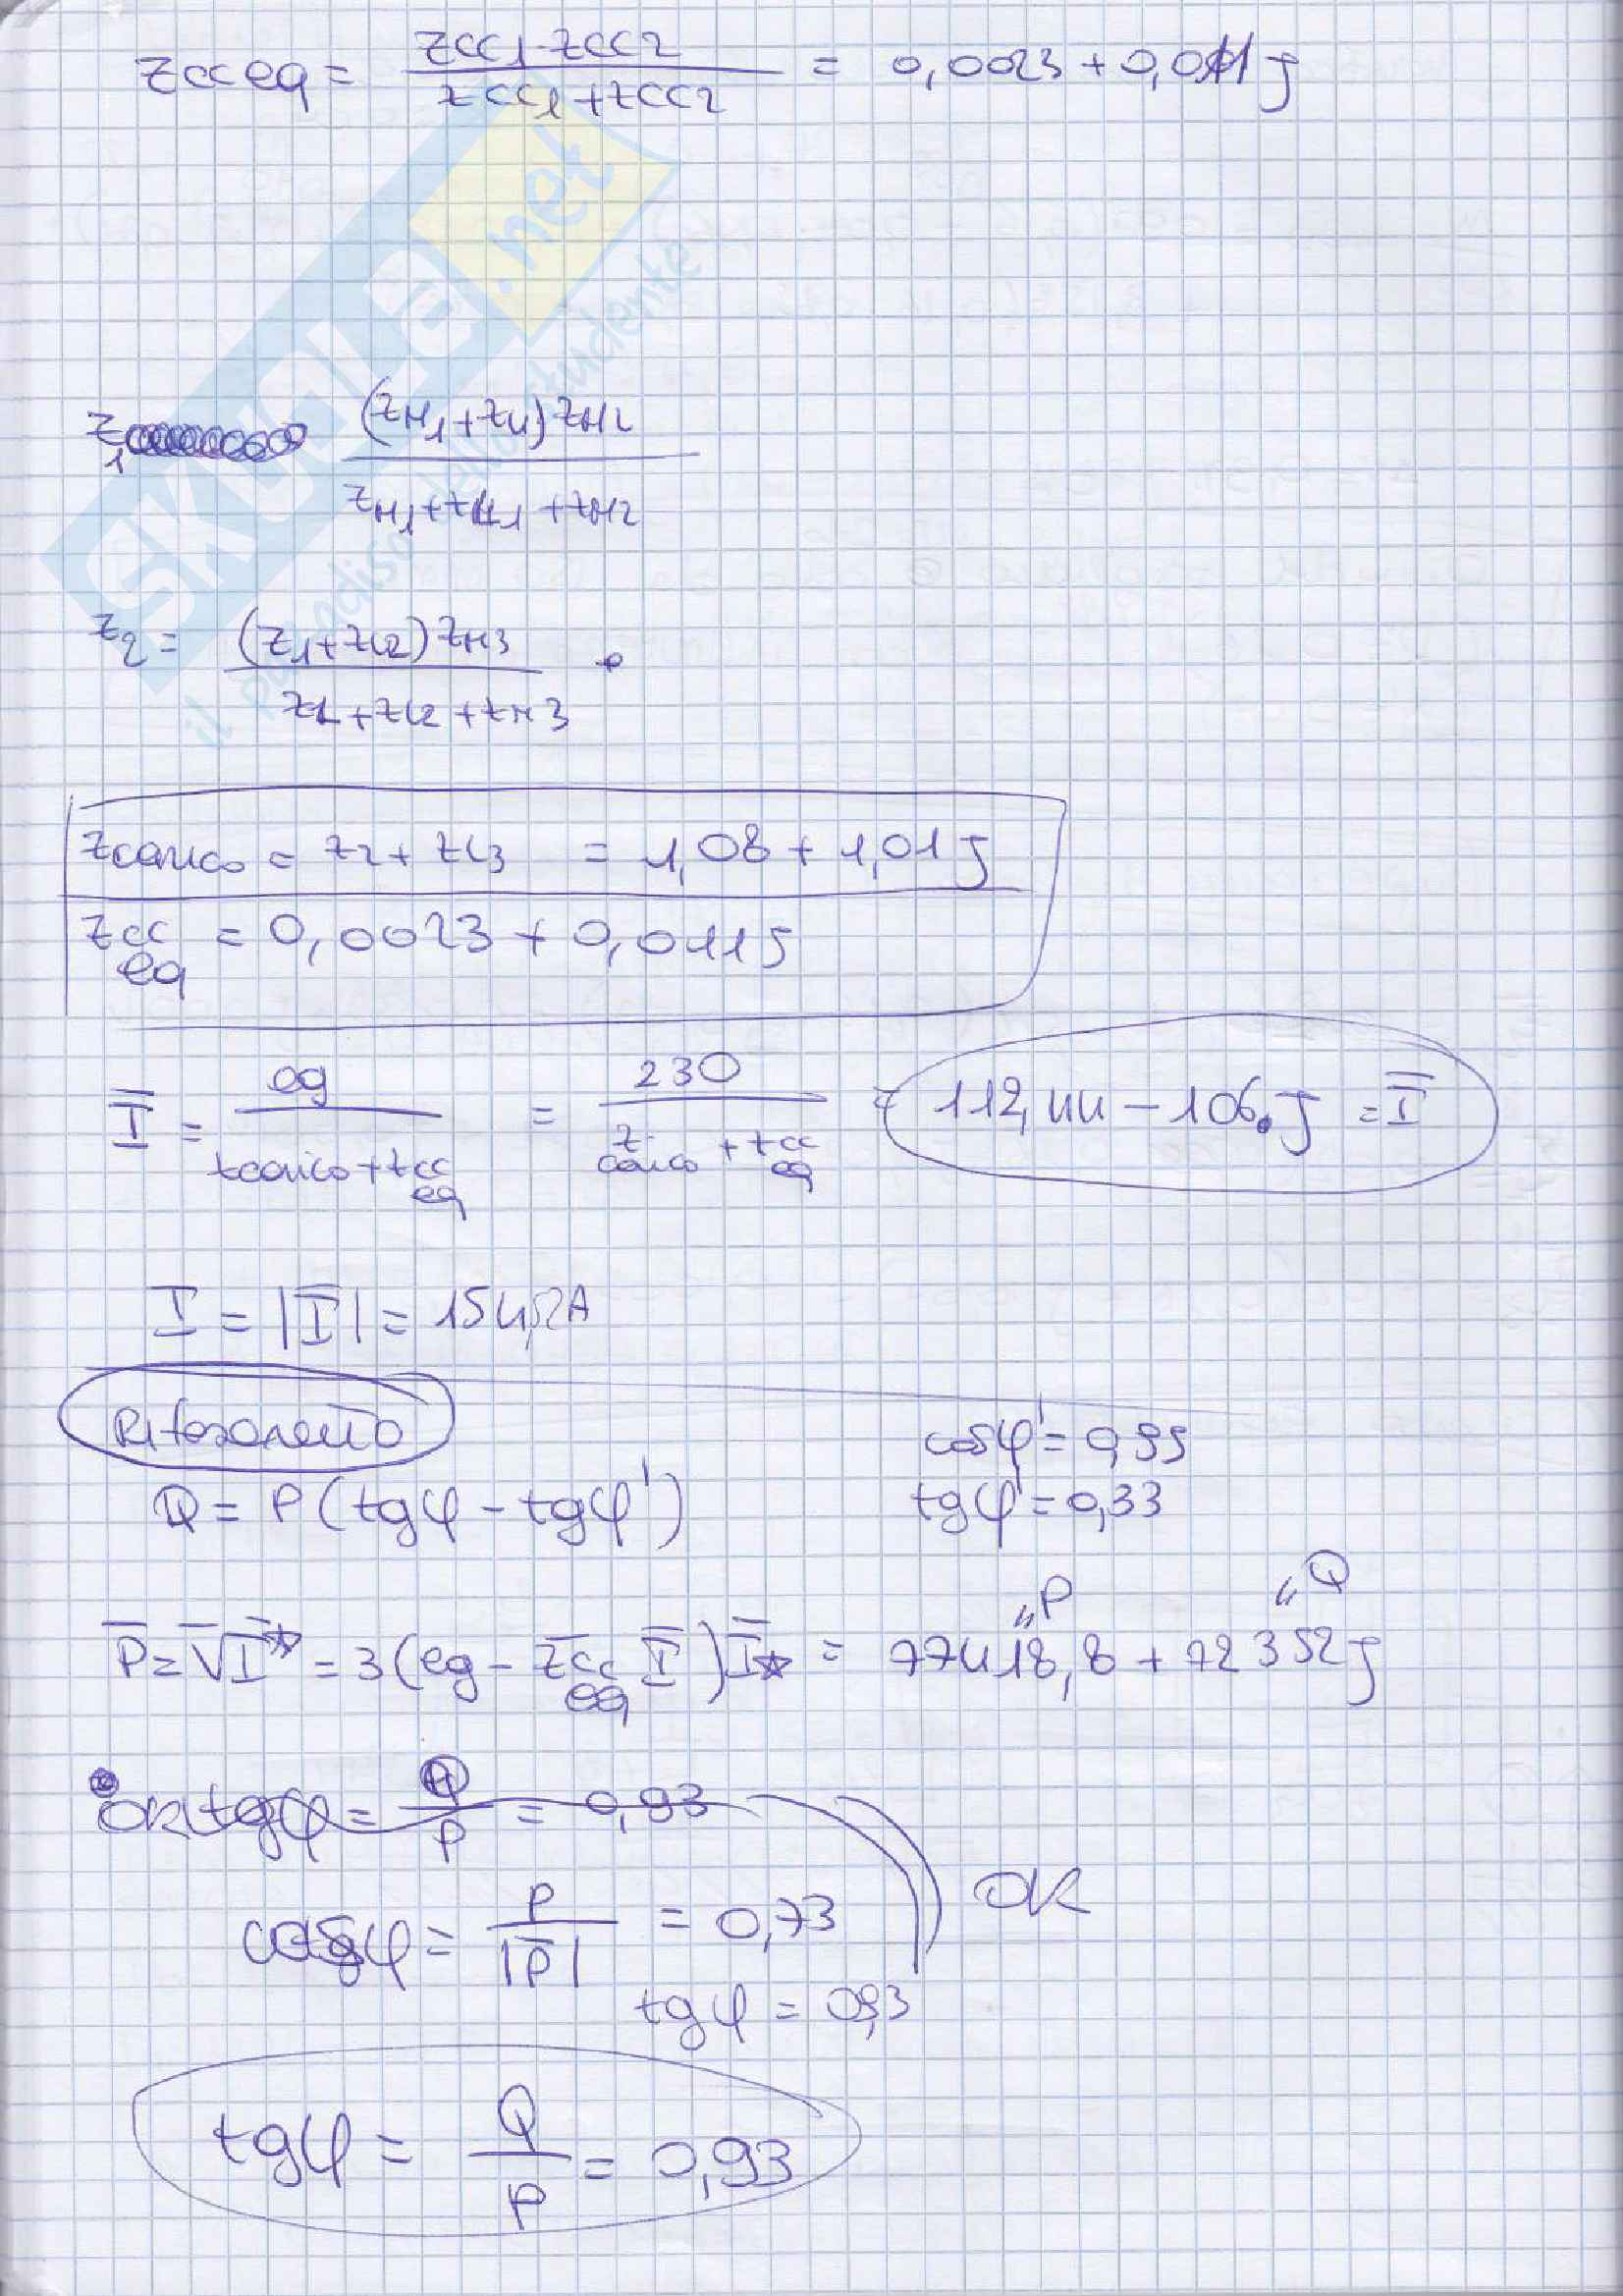 Zcc eq = (Zcc1 · Zcc2) / (Zcc1 + Zcc2) = 0,0023 + 0,011 j
SKUOLA.net
il paradiso dello studente
Z1 (ZM1 + ZL1) ZM2 / (ZM1 + ZL1 + ZM2)
Z2 = (Z1 + ZL2) ZM3 / (Z1 + ZL2 + ZM3)
Zcarico = Z2 + ZL3 = 1,08 + 1,01 j
Zcc eq = 0,0023 + 0,011 j
I̅ = eg / (Zcarico + Zcc eq) = 230 / (Zcarico + Zcc eq) = 112,44 - 106 j = I̅
I = |I̅| = 154,52 A
Rifasamento
cosφ' = 0,95
Q = P (tgφ - tgφ')
tgφ' = 0,33
"P "Q
P̅ = V̅ I̅* = 3 (eg - Z̅cc eq I̅) I̅* = 77418,8 + 72352 j
OK tgφ = Q / P = 0,93
OK
cosφ = P / |P̅| = 0,73
tgφ = 0,93
tgφ = Q / P = 0,93